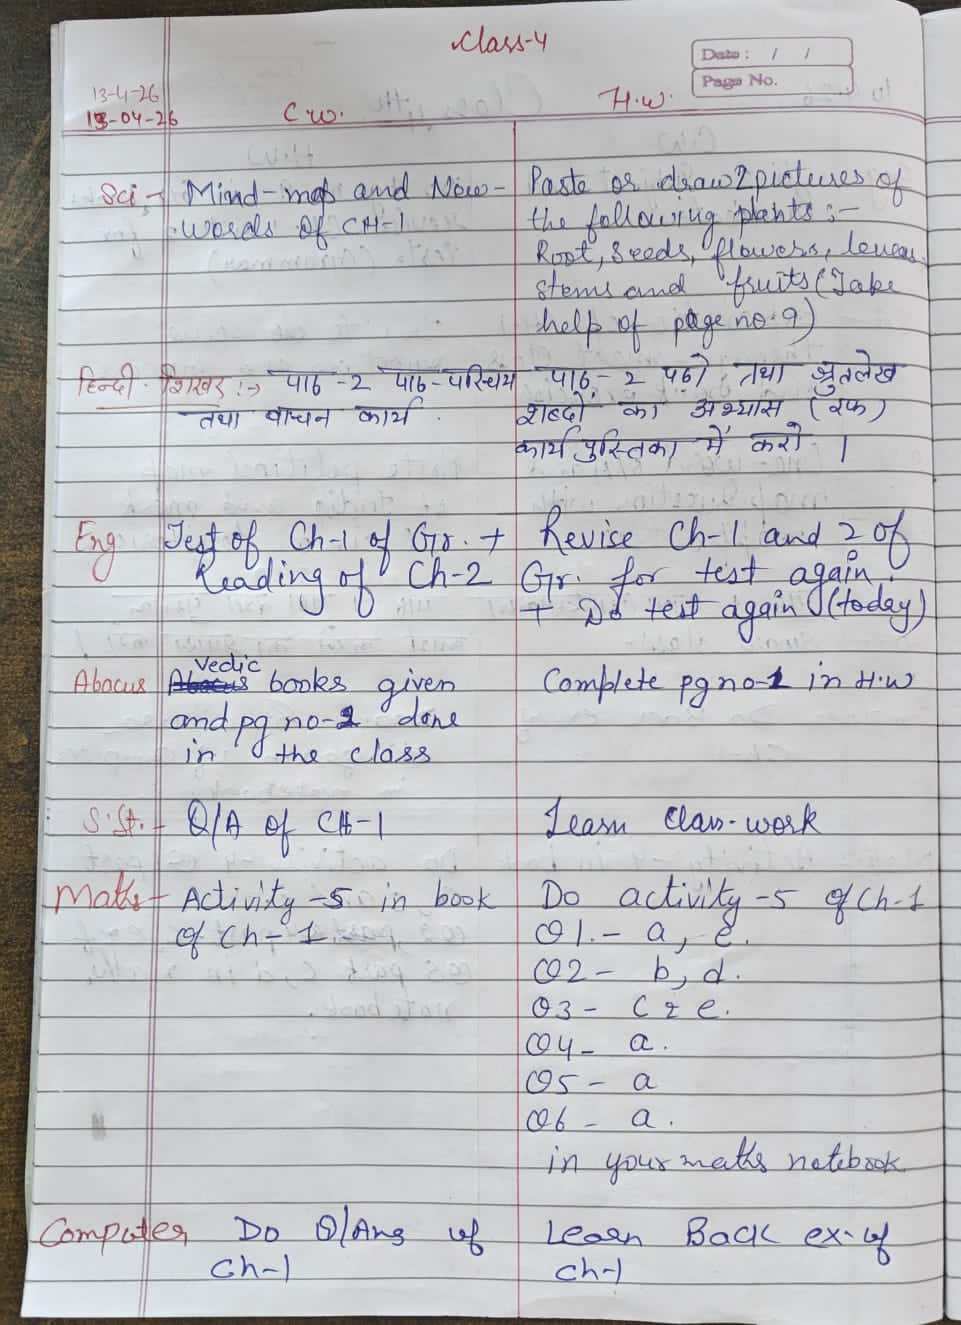 Class-4
Date : / /
Page No.
13-4-26
13-04-26
C.W.
H.W.
Sci - Mind-map and New-
words of CH-1
Paste or draw 2 pictures of
the following plants :-
Root, Seeds, flowers, leaves
stems and fruits (Take
help of page no. 9)
हिन्दी - शिखर :-> पाठ -2 पाठ-परिचय
तथा वाचन कार्य .
पाठ - 2 पढो, तथा श्रुतलेख
शब्दों का अभ्यास (रफ)
कार्य पुस्तिका में करो ।
Eng Test of Ch-1 of Gr. +
Reading of Ch-2
Revise Ch-1 and 2 of
Gr. for test again.
+ Do test again (today)
Abacus Vedic books given
and pg no-1 done
in the class
Complete pg no-1 in H.W
S.St. - Q/A of CH-1
Learn Class-work
Maths - Activity -5 in book
of Ch-1
Do activity -5 of Ch-1
Q1. - a, e.
Q2 - b, d.
Q3 - c & e.
Q4 - a.
Q5 - a
Q6 - a.
in your maths notebook
Computer Do Q/Ans of
Ch-1
Learn Back ex. of
ch-1